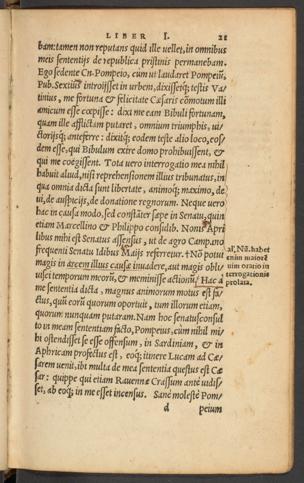 LIBER I. 21
bam: tamen non reputans quid ille uellet, in omnibus
meis sententijs de republica pristinis permanebam.
Ego sedente Cn. Pompeio, cum ut laudaret Pompeiũ,
Pub. Sextius introijsset in urbem, dixissetq; testis Va-
tinius, me fortuna & felicitate Cæsaris cõmotum illi
amicum esse cœpisse: dixi me eam Bibuli fortunam,
quam ille afflictam putaret, omnium triumphis, ui-
ctorijsq; anteferre: dixitq; eodem teste alio loco, eos/
dem esse, qui Bibulum exire domo prohibuissent, &
qui me coëgissent. Tota uero interrogatio mea nihil
habuit aliud, nisi reprehensionem illius tribunatus, in
qua omnia dicta sunt libertate, animoq; maximo, de
ui, de auspicijs, de donatione regnorum. Neque uero
hac in causa modo, sed constãter sæpe in Senatu, quin
etiam Marcellino & Philippo consulib. Nonis Apri
libus mihi est Senatus assensus, ut de agro Campano
frequenti Senatu Idibus Maijs referretur. †Nõ potui
magis in arcem illius causæ inuadere, aut magis obli/
uisci temporum meorũ, & meminisse actionũ. Hac a
me sententia dicta, magnus animorum motus est fa/
ctus, quũ eorũ quorum oportuit, tum illorum etiam,
quorum nunquam putaram. Nam hoc senatusconsul
to in meam sententiam facto, Pompeius, cum nihil mi/
hi ostendisset se esse offensum, in Sardiniam, & in
Aphricam profectus est, eoq; itinere Lucam ad Cæ-
sarem uenit, ibi multa de mea sententia questus est Cæ
sar: quippe qui etiam Rauennæ Crassum antè uidis/
set, ab eoq; in me esset incensus. Sanè molestè Pom/
d peium
al', Nõ. habet
enim maiorẽ
uim oratio in
terrogationis
prolata.